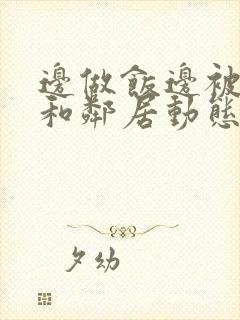 邊做飯邊被
和鄰居動態
夕幼